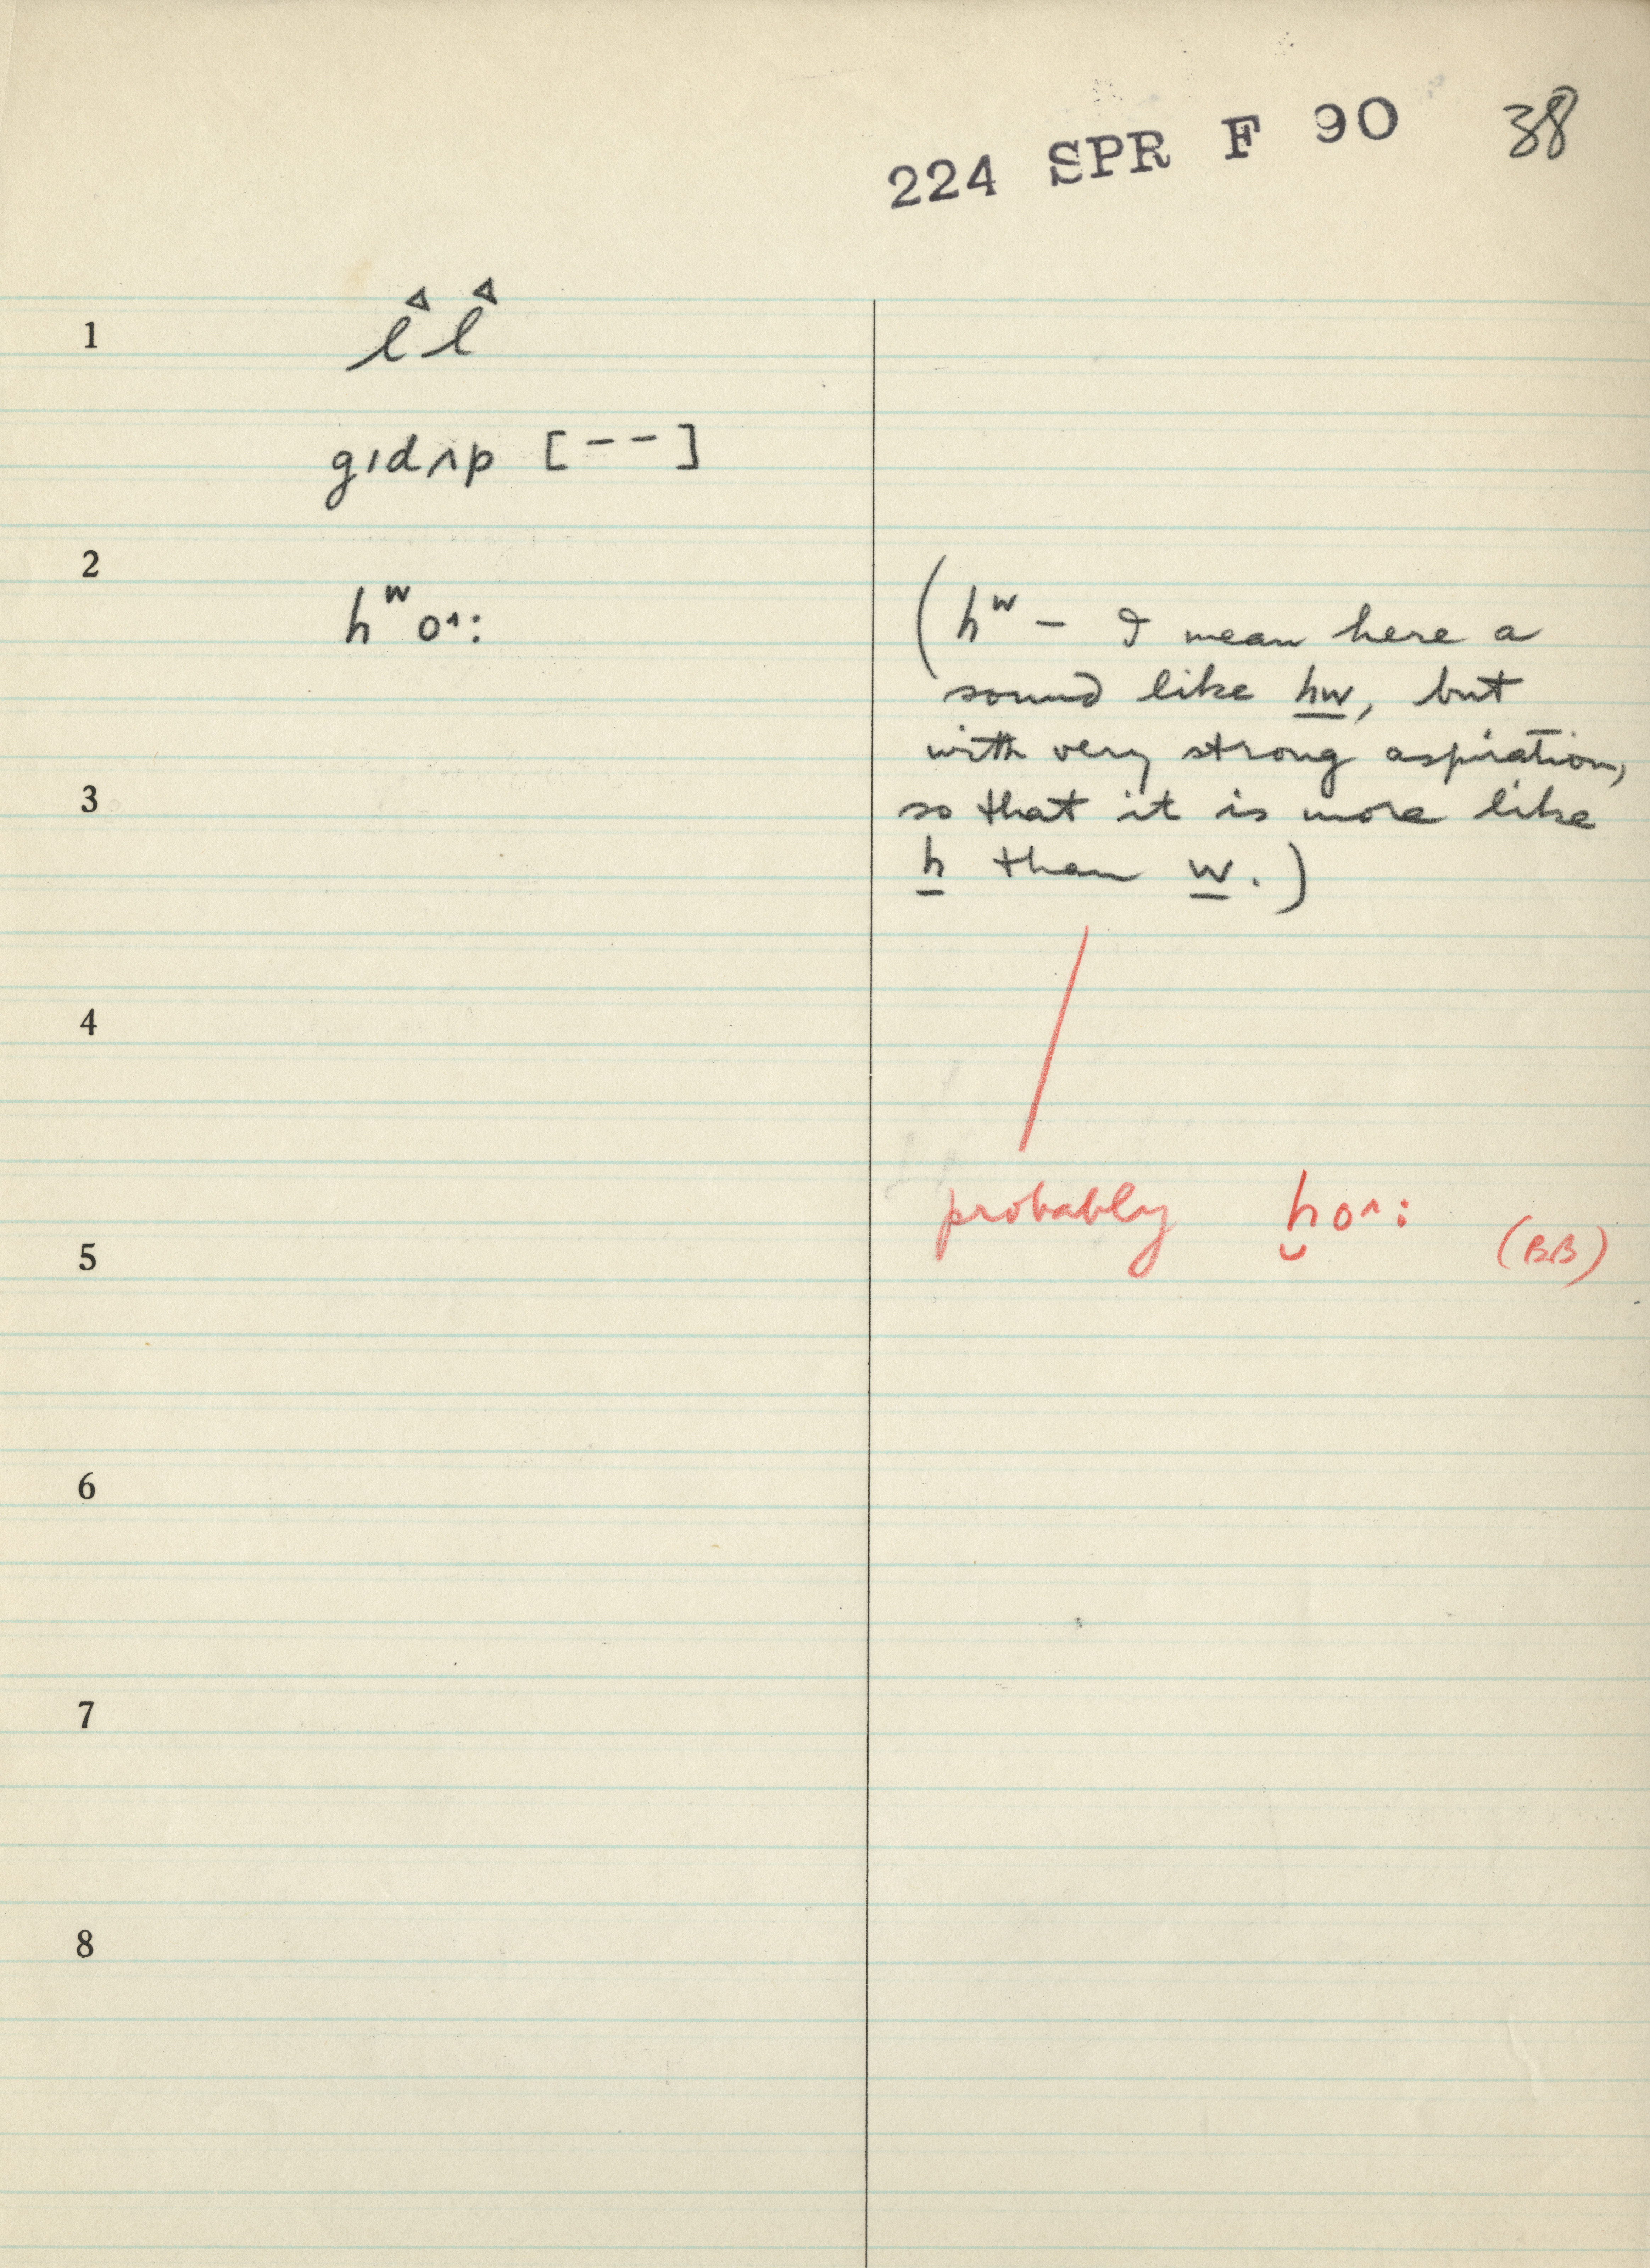 224 SPR F 90 38
1 ℓᐞ ℓᐞ
gıdʌp [– –]
2
hʷo^:
(hʷ – I mean here a
sound like hw, but
with very strong aspiration,
3
so that it is more like
h than w.)
4
probably ḫo^: (BB)
5
6
7
8